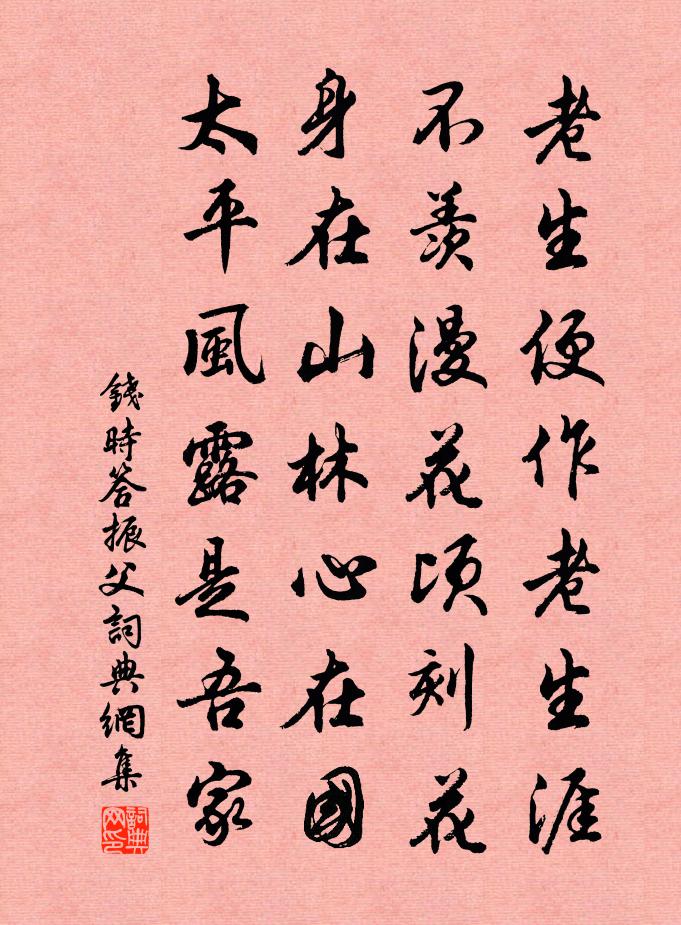 老生便作老生涯
不羨漫花頃刻花
身在山林心在國
太平風露是吾家
錢時答振父詞典網集
詞典网印